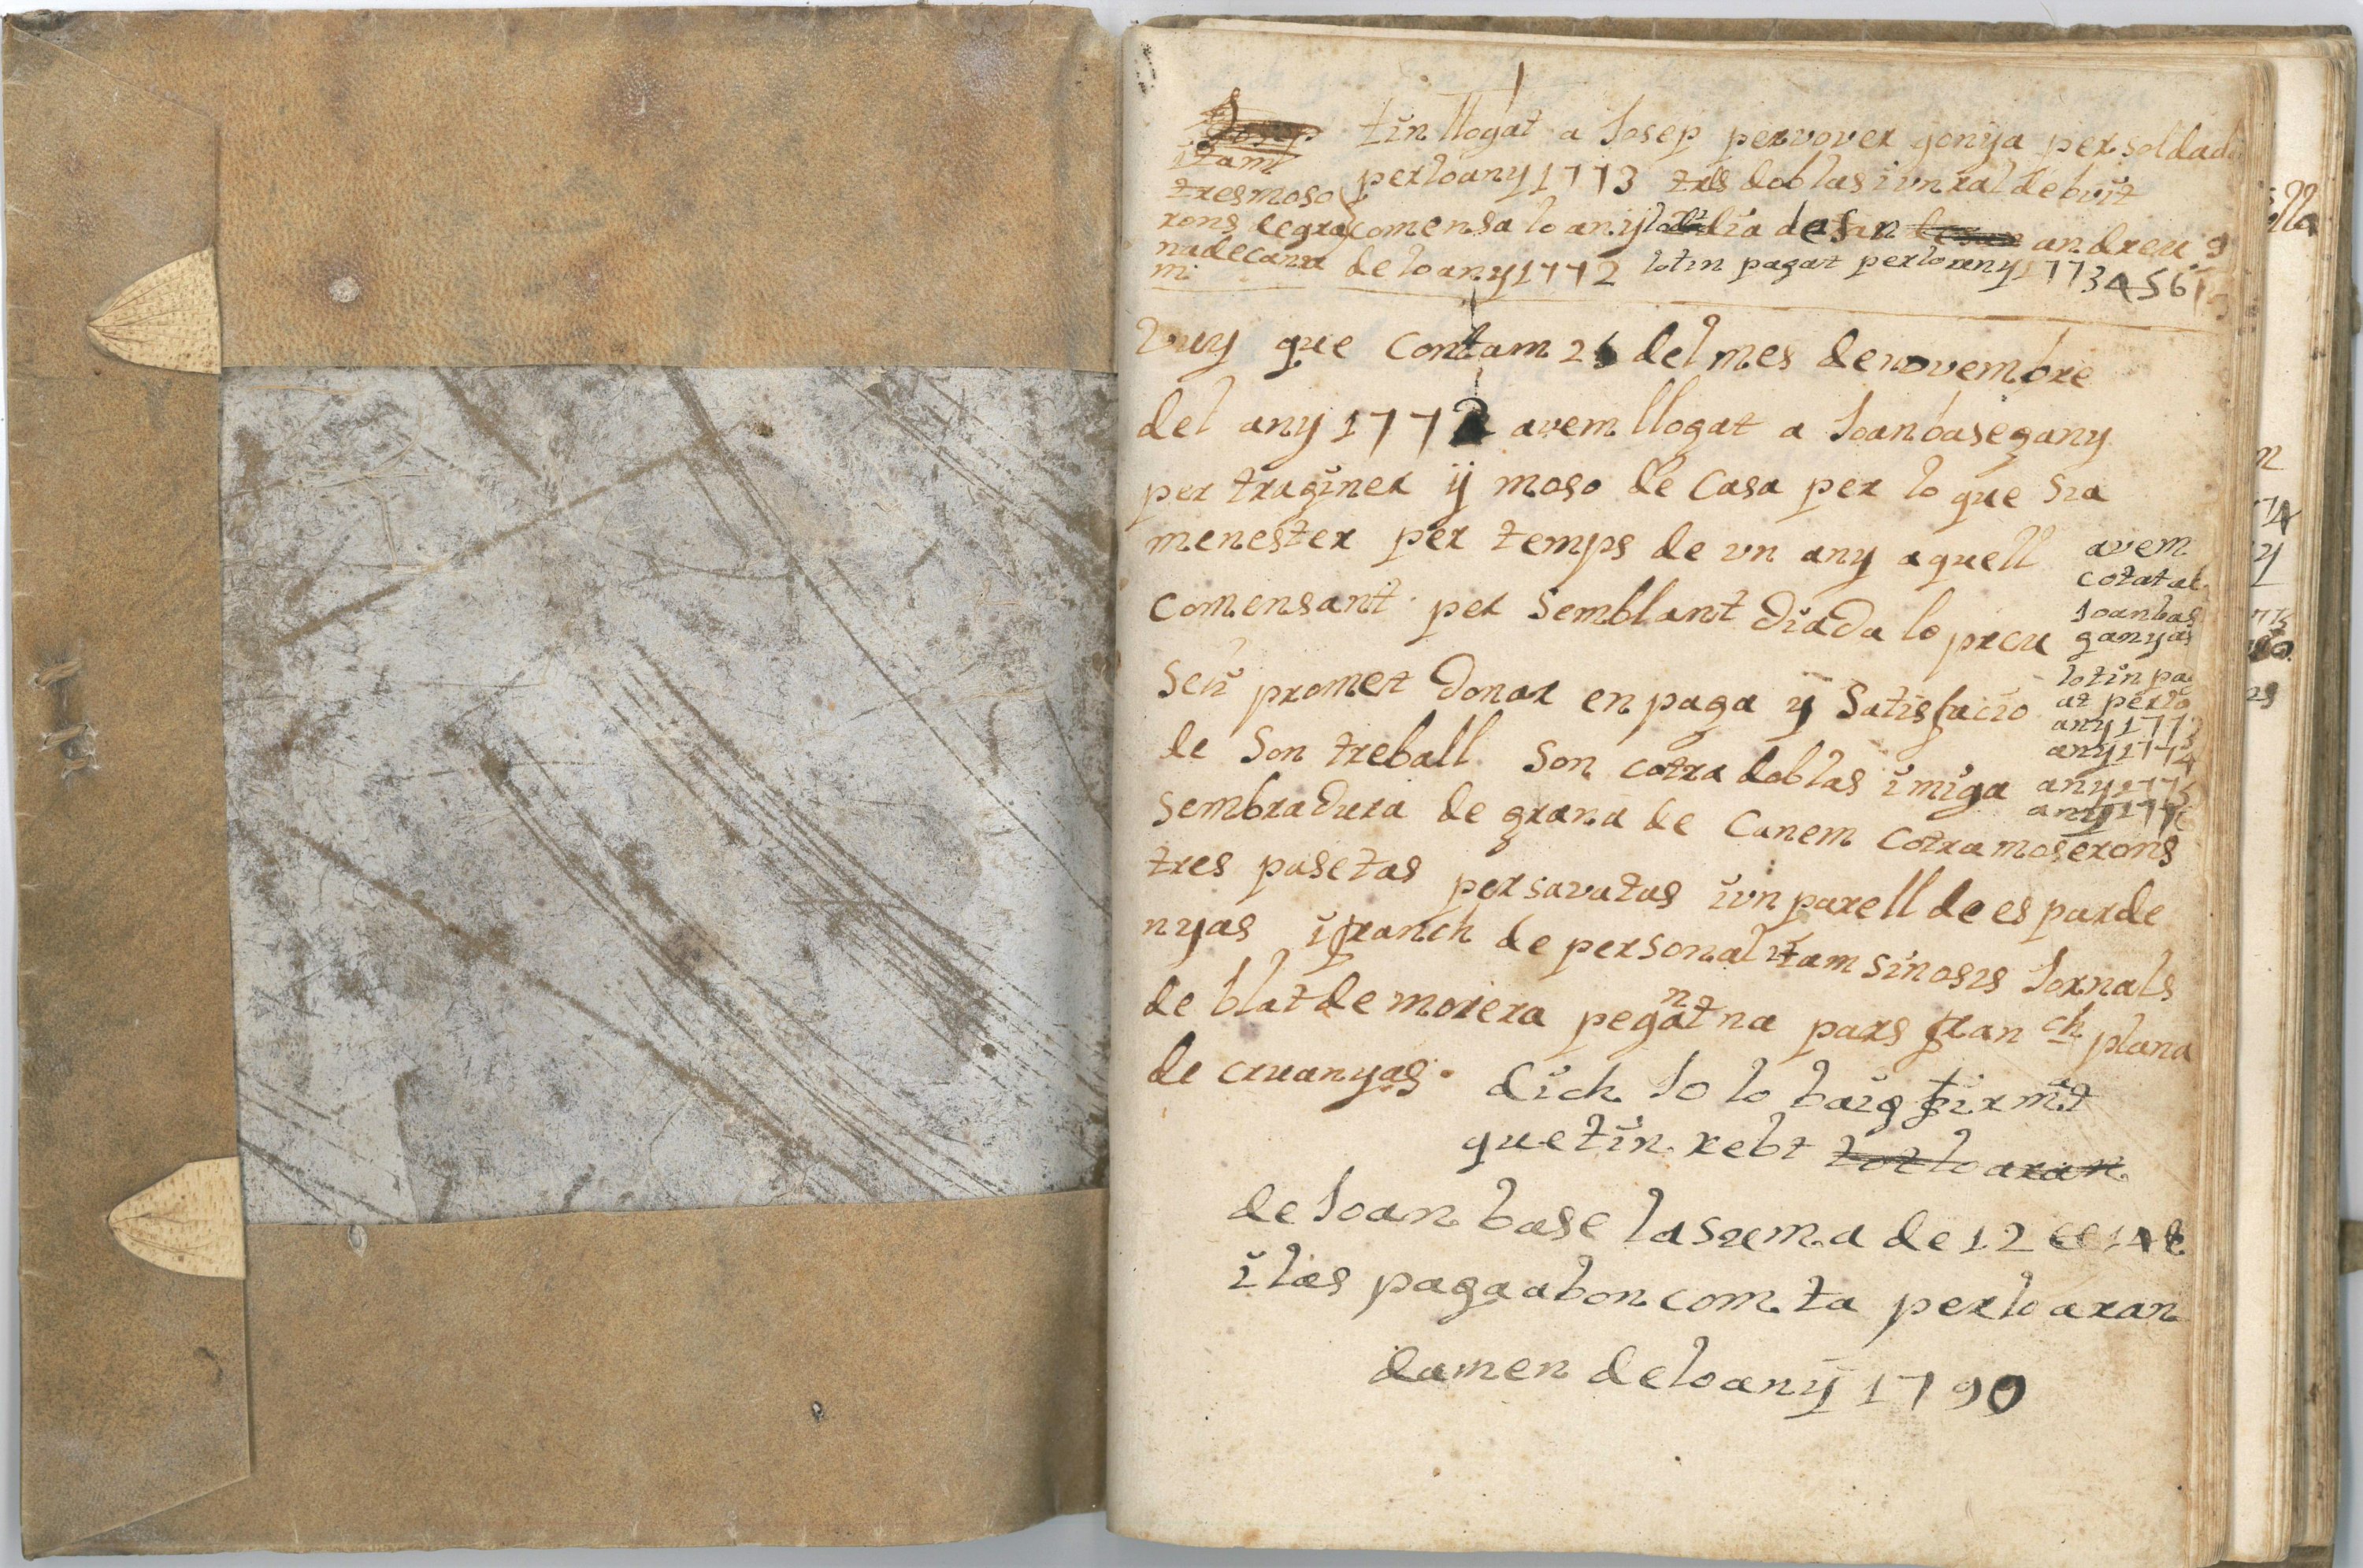 tin llogat a Josep per vover gonya per soldada
per lo any 1773 tres doblas i vn ral de bvit
comensa lo any lo dia de san andreu
de lo any 1772 lo tin pagat per lo any 1773 4 5 6
itam
tres moso
rons de gra
na de cana
m
vuy que Contam 26 del mes de novembre
del any 1772 avem llogat a Joan base gany
per traginer ij moso de Casa per lo que sia
menester per temps de vn any aquell
comensant per semblant diada lo preu
sen promet donar en paga y Satisfacio
de son treball son cotra doblas i miga
sembradura de grana de Canem cotra moserons
tres pasetas per savatas i vn parell de esparde
nyas i franch de personal itam sinosis Jornals
de blat de morera pegant na pars franch plana
de cruanyas.
avem
cotat ab
Joan bas
gany as
lo tin pa
at per lo
any 1773
any 1774
any 1775
any 1776
dich Jo lo baig firmat
que tin rebt tot lo aran
de Joan base la suma de 12
i las paga a bon comta per lo aran
damen de lo any 1790